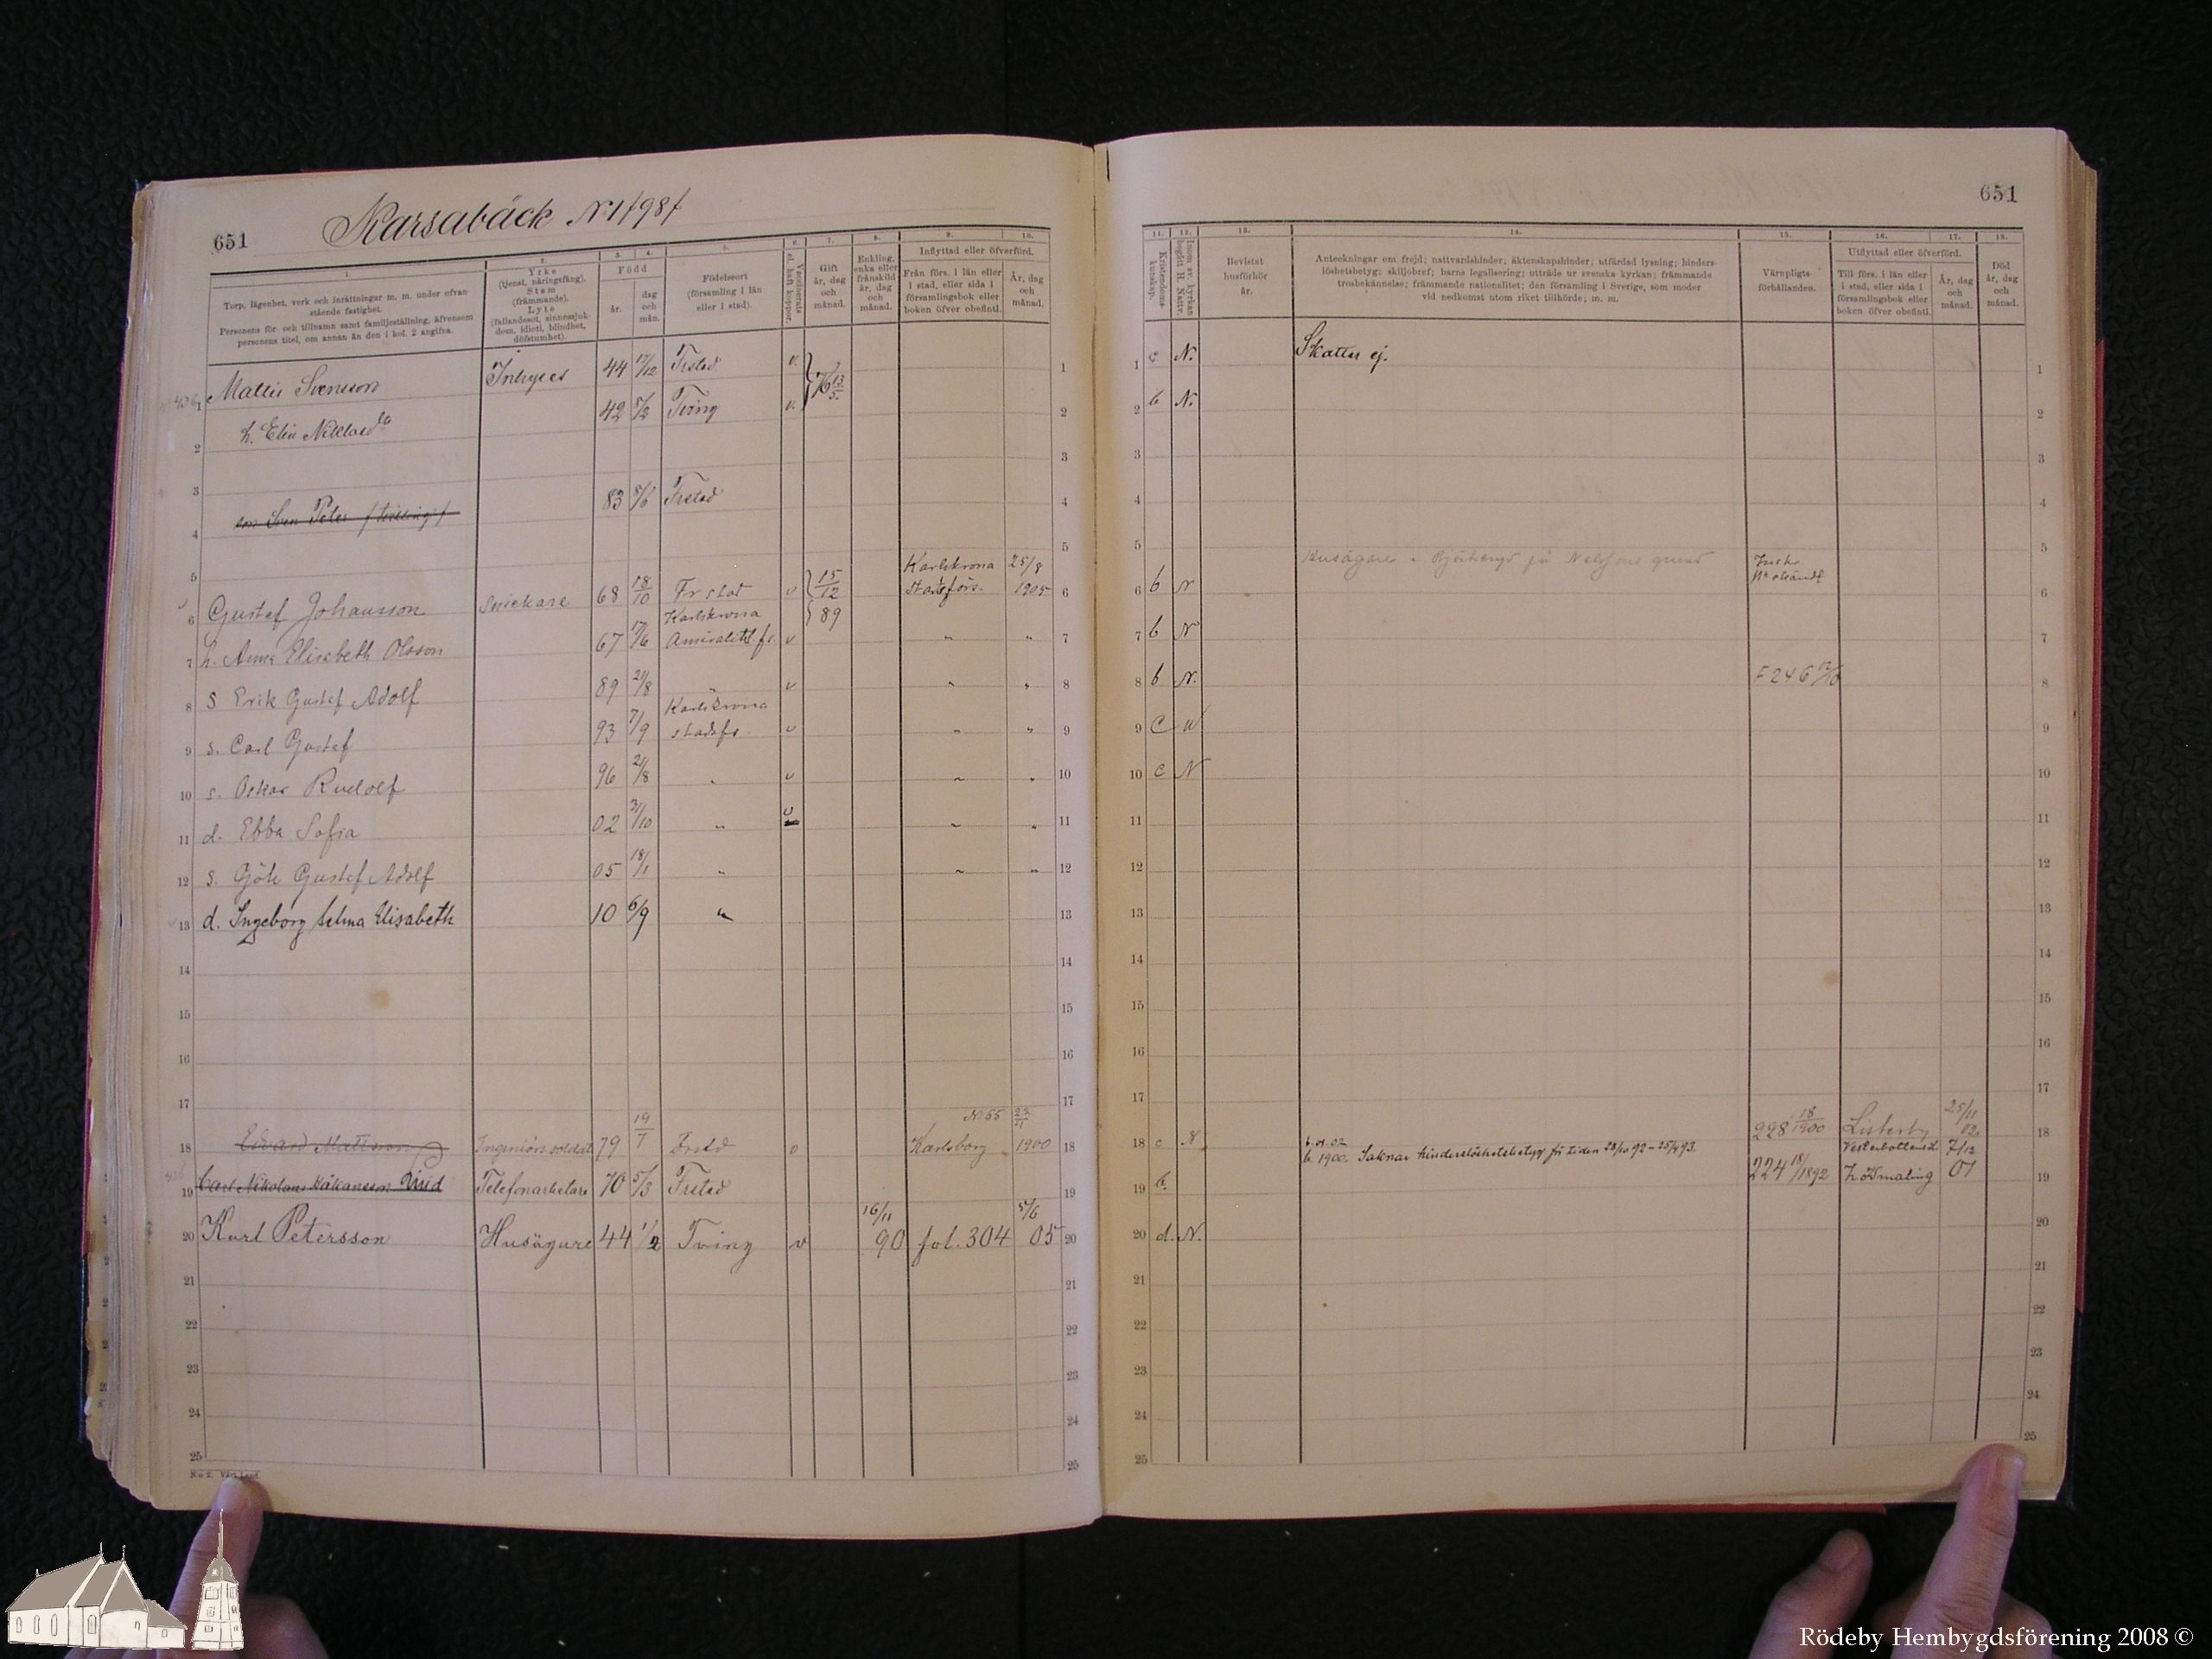 651
Karsabäck No 1/98/
1.
Torp, lägenhet, verk och inrättningar m. m. under ofvanstående fastighet.
Personens för- och tillnamn samt familjeställning, äfvensom personens titel, om annan än den i kol. 2 angifna.
2.
Yrke (tjenst, näringsfång). Stam (främmande). Lyte (fallandesot, sinnessjukdom, idioti, blindhet, döfstumhet).
3. 4.
Född
år. dag och mån.
5.
Födelseort (församling i län eller i stad).
6.
Vaccinerats el. haft koppor.
7.
Gift år, dag och månad.
8.
Enkling, enka eller frånskild år, dag och månad.
9. 10.
Inflyttad eller öfverförd.
Från förs. i län eller i stad, eller sida i församlingsbok eller boken öfver obefintl.
År, dag och månad.
1 Mattis Svensson Inhyses 44 17/12 Frstad v. 76 13/5 1
2 h. Elin 42 8/2 Tving v. 2
3 3
4 son Sven Peter /tvilling/ 83 8/6 Frstad 4
5 5
6 Gustaf Johansson Snickare 68 18/10 Frstad v 15/12 89 Karlskrona Stadsförs. 25/8 1905 6
7 h. Anna Elisabeth Olsson 67 17/6 Karlskrona Amiralitf. fs. v " " 7
8 s Erik Gustaf Adolf 89 21/8 " v " " 8
9 s. Carl Gustaf 93 7/9 Karlskrona stadsfs. v " " 9
10 s. Oskar Rudolf 96 21/8 " v " " 10
11 d. Ebba Sofia 02 3/10 " v " " 11
12 s. Göte Gustaf Adolf 05 18/1 " " " 12
13 d. Ingeborg Selma Elisabeth 10 6/9 " 13
14 14
15 15
16 16
17 17
18 Edvard Mattisson Ingeniörsoldat 79 19/7 Frstd v No 55 Karlsborg 1900 18
19 Carl Nikolaus Håkansson Telefonarbetare 70 5/3 Frstad 19
20 Karl Petersson Husägare 44 1/2 Tving v 16/11 90 fol. 304 5/6 05 20
21 21
22 22
23 23
24 24
25 25
651
11.
Kristendomskunskap.
12.
Inom sv. kyrkan begått H. Nattv.
13.
Bevistat husförhör år.
14.
Anteckningar om frejd; nattvardshinder; äktenskapshinder; utfärdad lysning; hinderslöshetsbetyg; skiljobref; barns legalisering; utträde ur svenska kyrkan; främmande trosbekännelse; främmande nationalitet; den församling i Sverige, som moder vid nedkomst utom riket tillhörde; m. m.
15.
Värnpligtsförhållanden.
16. 17.
Utflyttad eller öfverförd.
Till förs. i län eller i stad, eller sida i församlingsbok eller boken öfver obefintl.
År, dag och månad.
18.
Död år, dag och månad.
1 c N. Skatter ej. 1
2 b N. 2
3 3
4 4
5 5
6 b N Husägare på grund 6
7 b N 7
8 b N. 8
9 c N 9
10 c N 10
11 11
12 12
13 13
14 14
15 15
16 16
17 17
18 c N 228 18/1900 Listerby 25/11 02. 18
b. 1900. Saknar hinderslöshetsbetyg för tiden 28/10 92 - 25/4 93.
19 b. 224 18/1892 Vesterbottensl. Nordmaling 7/12 01 19
20 d. N. 20
21 21
22 22
23 23
24 24
25 25
Rödeby Hembygdsförening 2008 ©